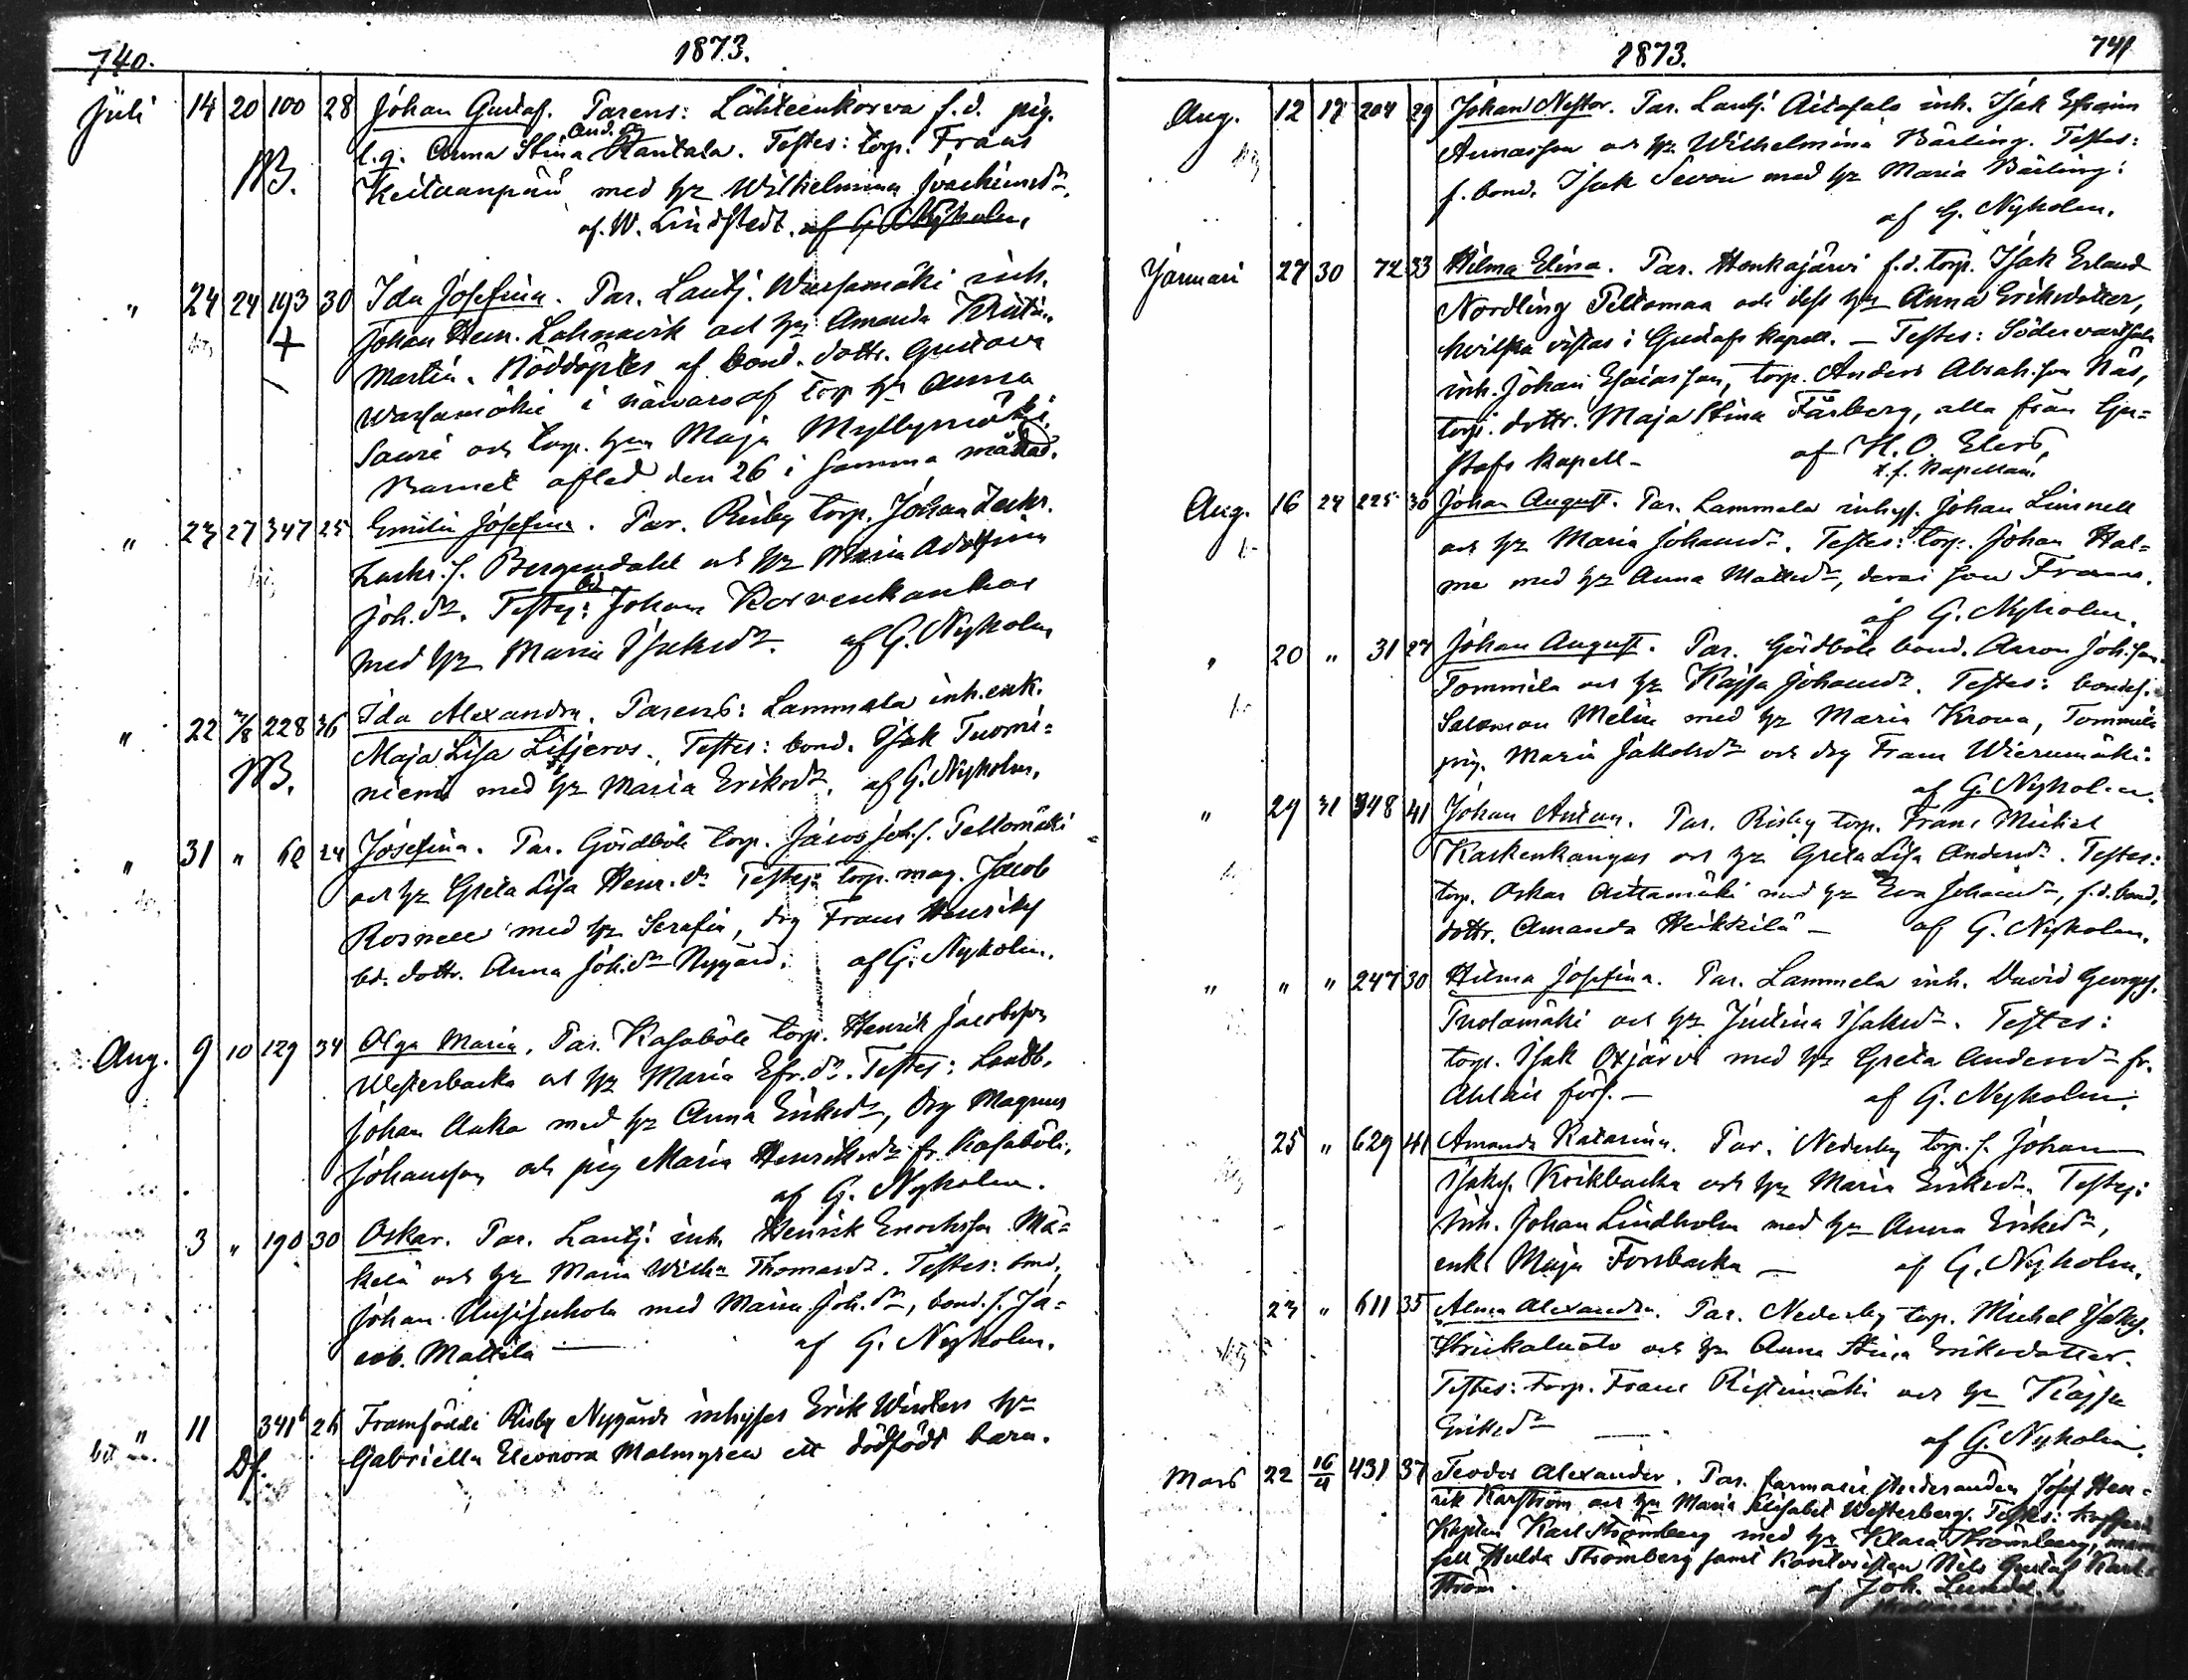 740. 1873.
Juli 14 20 100 28 Johan Gustaf. Parens: Lähteenkorva f.d. pig.
And. dr
l.g. Anna Stina Hantala. Testes: torp. Frans
NB. Keitaanpää med hu Wilhelmina Joachimsdr.
af W. Lindstedt. af G. Nyholm.
" 24 24 193 30 Ida Josefina. Par. Lautj. Warsamäki inh.
+ Johan Henr. Lahnavik och hu Amanda
Martin. Nöddöptes af bond. dottr. Gustava
Warsamäki i närvaro af torp. hu Anna
Sauri och torp. hu Maja Myllymäki.
Barnet afled den 26 i samma månad.
" 23 27 347 25 Emilia Josefina. Par. Risby torp. Johan Zachr.
Zachr.s. Bergendahl och hu Maria Adolfina
Joh.dr. Testes: bd Johan Korvenkanhas
med hu Maria Isaksdr. af G. Nyholm
" 22 3/8 228 36 Ida Alexandra. Parens: Lammala inh.enk.
Maja Lisa Lisjeros. Testes: bond. Isak Tuomi=
NB. niemi med hu Maria Eriksdr. af G. Nyholm.
" 31 " 62 24 Josefina. Par. Gördböle torp. Jacob Joh.s. Peltomäki
och hu Greta Lisa Henr.dr Testes: torp. mag. Jacob
Rosnell med hu Serafia, drg Frans Henriks
bd. dottr. Anna Joh.dr Nygård. af G. Nyholm.
Aug. 9 10 129 34 Olga Maria. Par. Kasaböle torp. Henrik Jacobsson
Westerbacka och hu Maria Efr.dr. Testes: Landb.
Johan Anka med hu Anna Eriksdr, drg Magnus
Johansson och pig Maria Henriksdr fr. Kasaböle.
af G. Nyholm.
3 " 190 30 Oskar. Par. Lautj. inh. Henrik Enochsson Mä=
kelä och hu Maria Wilh. Thomasdr. Testes: bond.
Johan Uusijuhola med Maria Joh.dr, bond.s. Ja=
cob. Mattila — af G. Nyholm.
" 11 341 26 Framfödde Risby Nygårds inhyses Erik Winters hu
Df. Gabriella Eleonora Malmgren ett dödfödt barn.
1873. 741
Aug. 12 17 204 29 Johan Nestor. Par. Lautj. Aitasalo inh. Isak Efraim
Annasson och hu Wilhelmina Bärling. Testes:
f. bond. Isak Sevon med hu Maria Bärling:
af G. Nyholm.
Januari 27 30 72 33 Hilma Elina. Par. Honkajärvi f.d. torp. Isak Erland
Nordling Peltomaa och dess hu Anna Eriksdotter,
hvilka vistas i Gustafs kapell. — Testes: Södervartsala
inh. Johan Esaiasson, torp. Anders Abrah.son Näs,
torp. dottr. Maja Stina Färberg, alla från Gu=
stafs kapell — af H. O. Elers,
t.f. Kapellan.
Aug. 16 24 225 30 Johan August. Par. Lammala inhys. Johan Linnell
och hu Maria Johansdr. Testes: torp. Johan Hal=
me med hu Anna Mattsdr, deras son Frans.
af G. Nyholm.
" 20 " 31 27 Johan August. Par. Gördböle bond. Aaron Joh.son
Tommila och hu Kajsa Johansdr. Testes: bondes.
Salomon Melin med hu Maria Krona, Tommila
pig. Maria Jakobsdr och drg Frans Wierumäki.
af G. Nyholm.
" 29 31 348 41 Johan Anton. Par. Risby torp. Frans Michel
Kaskenkangas och hu Greta Lisa Andersdr. Testes:
torp. Oskar Aittamäki med hu Eva Johansdr, f.d. bond.
dottr. Amanda Heikkilä — af G. Nyholm.
" " " 247 30 Hilma Josefina. Par. Lammela inh. David Georgs.
Tuolamäki och hu Justina Isaksdr. Testes:
torp. Isak Oxjärvi med hu Greta Andersdr fr.
Ahlais förs. — af G. Nyholm.
25 " 629 41 Amanda Katarina. Par. Nederby torp.s. Johan
Isaks. Krickbacka och hu Maria Eriksdr. Testes:
Inh. Johan Lindholm med hu Anna Eriksdr,
enk. Maja Forsbacka — af G. Nyholm.
23 " 611 35 Alma Alexandra. Par. Nederby torp. Michel Isaks.
och hu Anna Stina Eriksdotter.
Testes: torp. Frans Ristimäki och hu Kajsa
Eriksdr — af G. Nyholm.
Mars 22 16/4 431 37 Teodor Alexander. Par. farmacie studeranden Josef Hen=
rik Karström och hu Maria Elisabet Westerberg. Testes:
Kapten Karl Strömberg med hu Klara Strömberg, mam=
sell Hulda Strömberg samt Nils Gustaf Kar=
ström. af Joh. Lunden